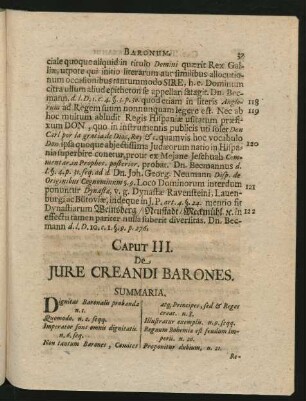 BARONUM.
ciale quoque aliquid in titulo Domini quærit Rex Gal-
liæ, utpote qui initio literarum aut similibus allocutio-
num occasionibus statum modo SIRE, h. e. Dominum
citra ullum aliud epitheton se appellari sfatagit. Dn. Bec-
mann. d. l. D. 1. c. 4. §. 1. p. 30. quod etiam in literis
ad Regem suum nonnunquam legere est. Nec ab 118
hoc multum abludit Regis Hispaniæ usitatum præfi-
xum DON, quo in instrumentis publicis uti solet Don 119
Carl por la gratia de Dios, Rey &c. quamvis hoc vocabulo
Don ipsa quoque abjectissimi Judæorum natio in Hispa- 120
nia superbire conetur, prout ex Mejanæ Jeshibab Com-
mentar. ad Prophet. posterior. probat. Dn. Becmannus d.
l. §. 4. p. 31. seq. add. Dn. Joh. Georg. Neumann Disp. de
Originibus Cognominum §. 9. Loco Dominorum interdum 121
ponuntur Dynastæ, v. g. Dynastæ Ravensteinii, Lauen-
burgi ac Bütoviæ, indeque in J. P. art. 4. §. 24. mentio fit
Dynastiarum Weinsberg / Neustadt / Meckmühl &c. in 122
effectu tamen pariter nulla subest diversitas. Dn. Bec-
mann d. l. D. 10. c. 1. §. 9. p. 276.
CAPUT III.
De
JURE CREANDI BARONES.
SUMMARIA.
Dignitas Baronalis probanda
n. 1.
Quomodo. n. 2. seqq.
Imperator fons omnis dignitatis
n. 6. seq.
Non tantum Barones, Comites
atq; Principes, sed & Reges
creat. n. 8.
Illustratur exemplis. n. 9. seqq.
Regnum Bohemiæ est feudum im-
perii. n. 20.
Proponitur dubium, n. 21.
Re-